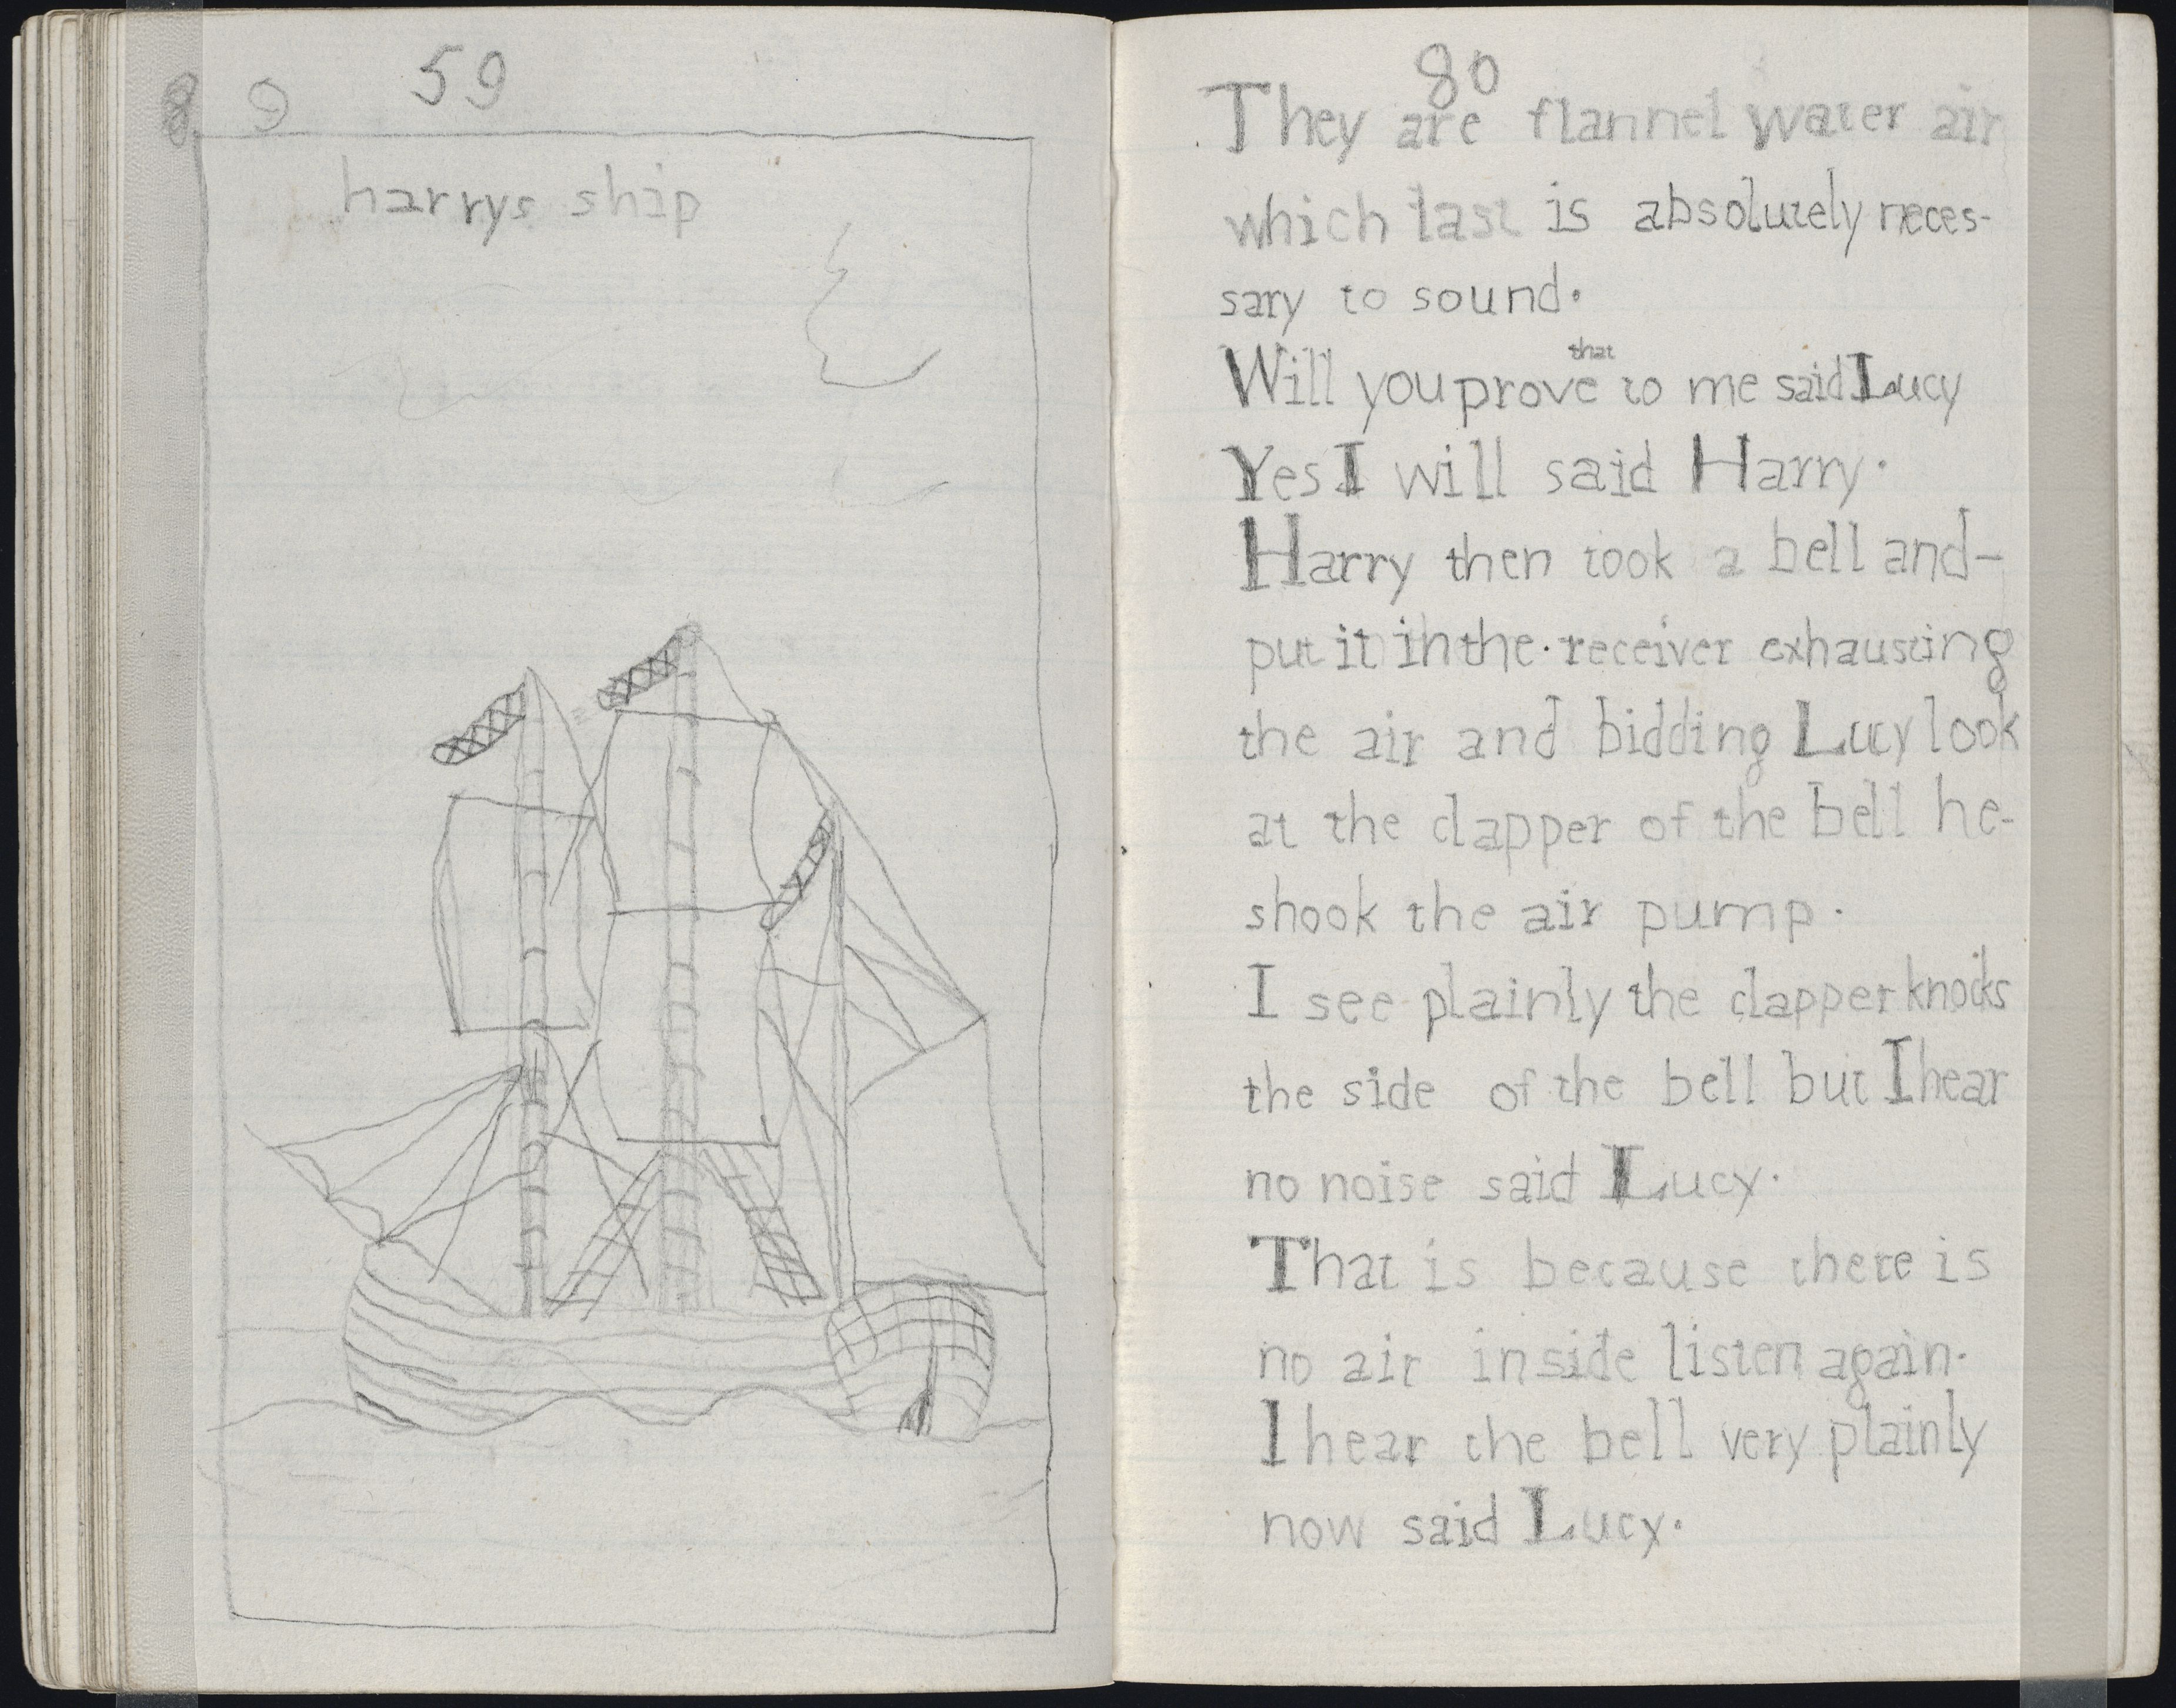 8 9 59
harrys ship
80
They are flannel water air
which last is absolutely neces-
sary to sound.
that
Will you prove to me said Lucy
Yes I will said Harry.
Harry then took a bell and-
put it in the. receiver exhausting
the air and bidding Lucy look
at the clapper of the bell he-
shook the air pump.
I see plainly the clapper knocks
the side of the bell but I hear
no noise said Lucy.
That is because there is
no air inside listen again.
I hear the bell very plainly
now said Lucy.